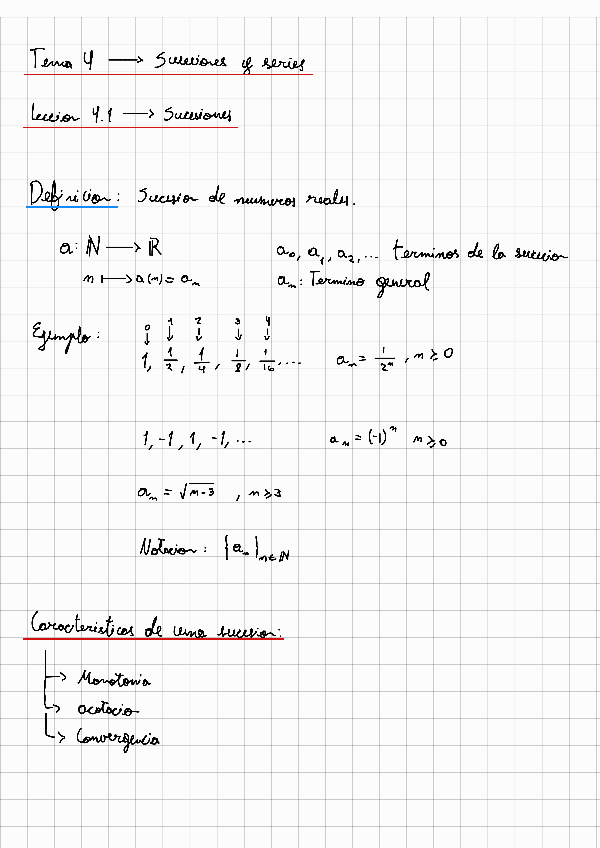 Tema 4 ⟶ Sucesiones y series
Leccion 4.1 ⟶ Sucesiones
Definicion: Sucesion de numeros reales.
a: ℕ ⟶ ℝ a₀, a₁, a₂, ... terminos de la sucesion
n ⟼ a(n) = aₙ aₙ: Termino general
0 1 2 3 4
↓ ↓ ↓ ↓ ↓
Ejemplo: 1, 1/2, 1/4, 1/8, 1/16, ... aₙ = 1/2ⁿ, n ≥ 0
1, -1, 1, -1, ... aₙ = (-1)ⁿ n ≥ 0
aₙ = √(n-3) , n ≥ 3
Notacion: {aₙ}ₙ∈ℕ
Caracteristicas de una sucesion:
→ Monotonia
→ acotacio
→ Convergencia